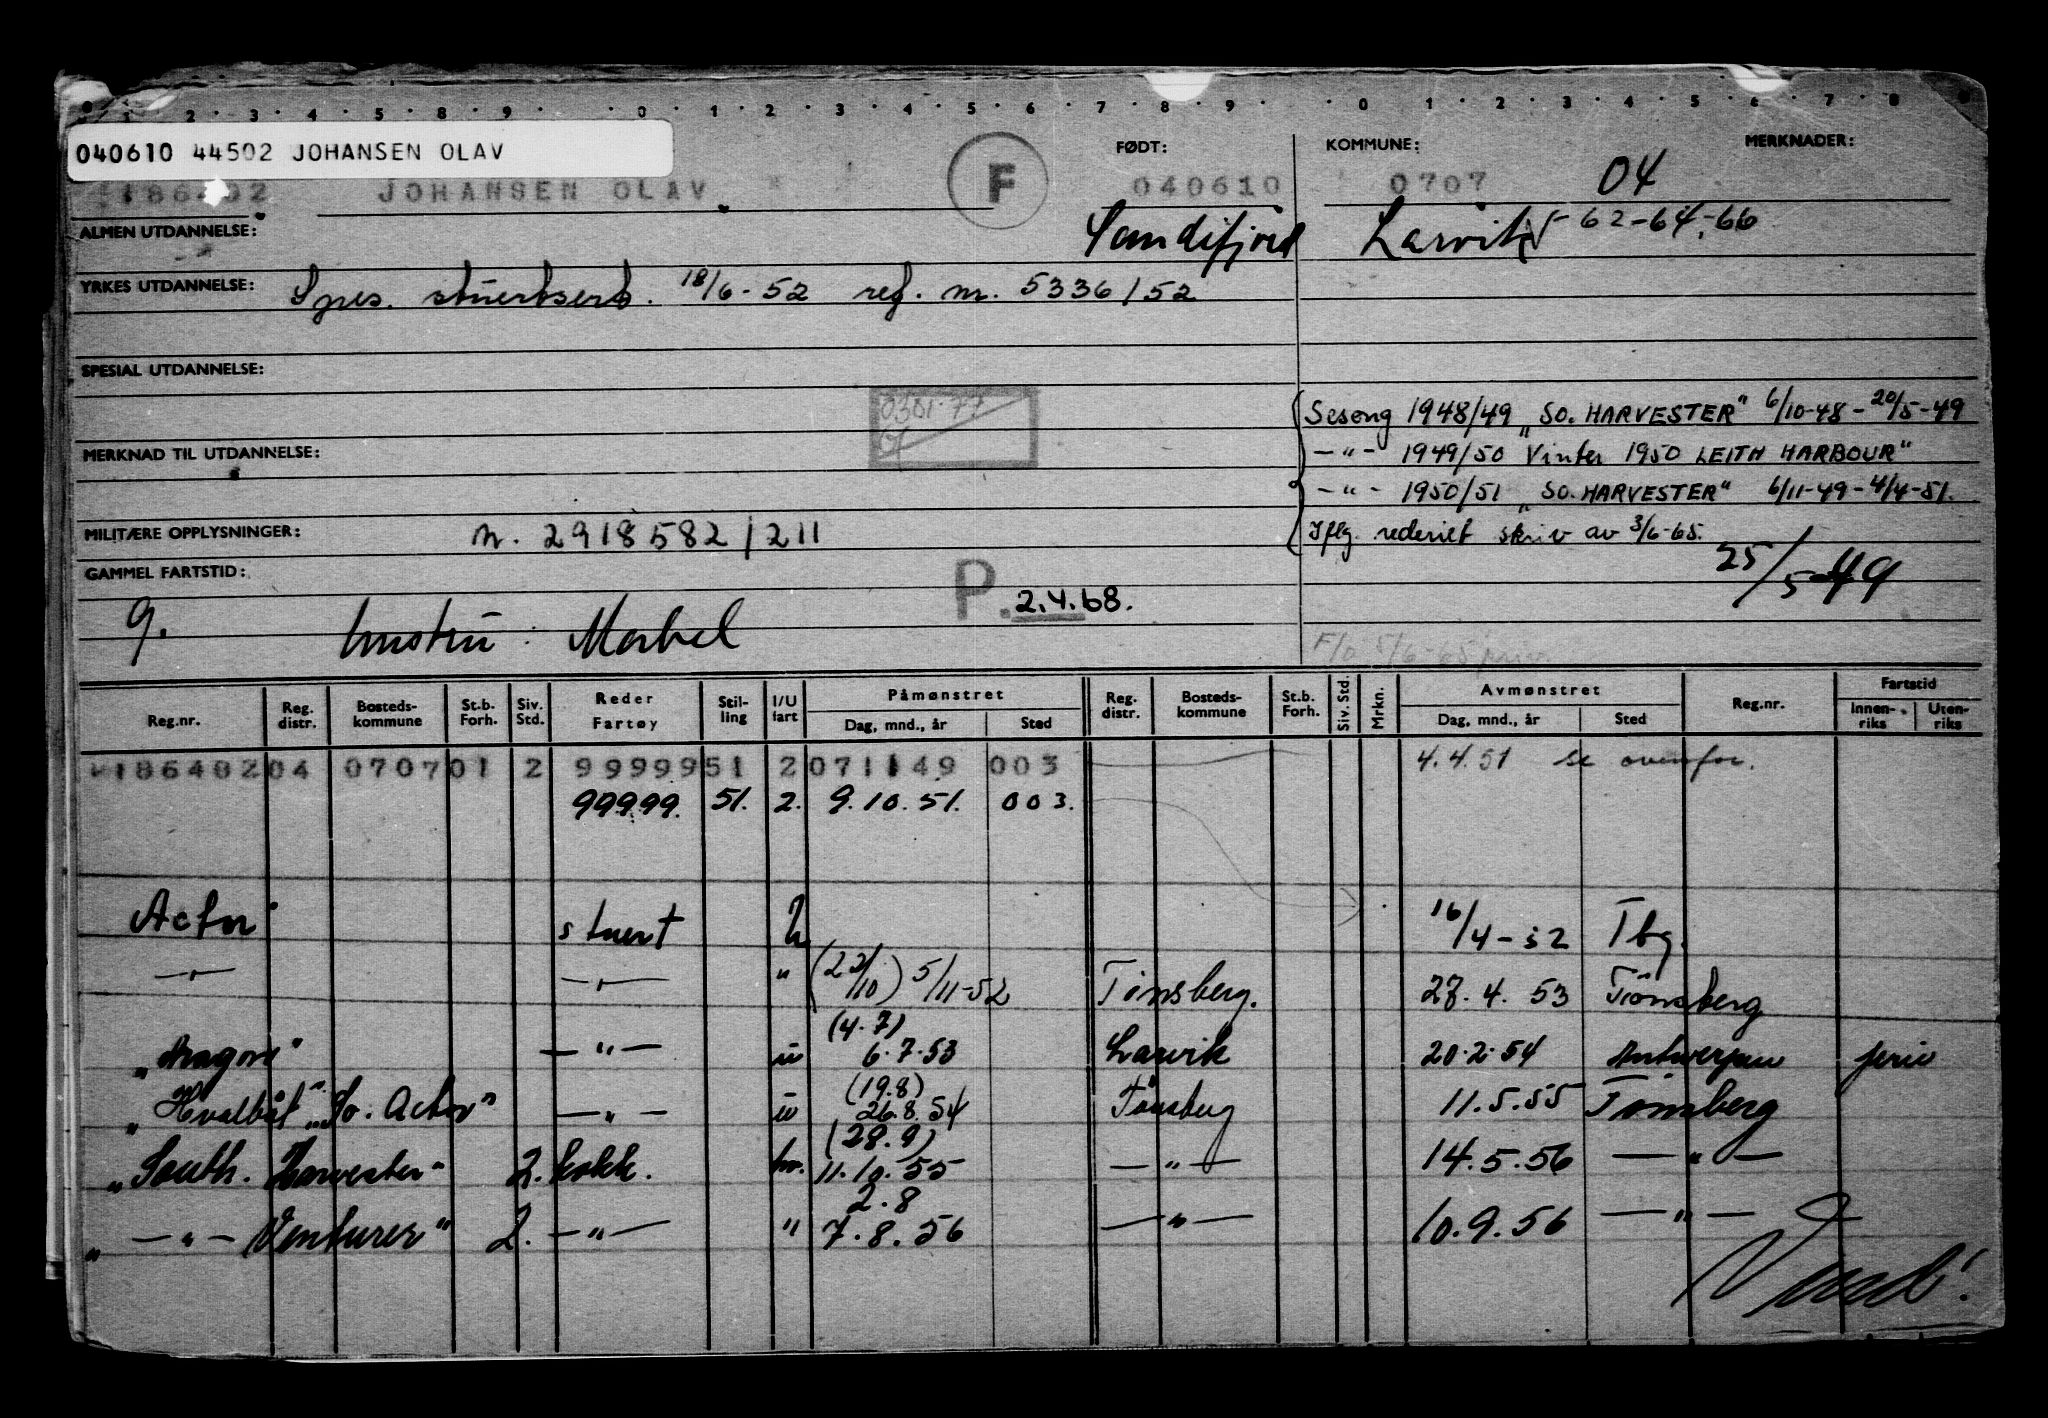 1 2 3 4 5 8 9 0 1 2 3 4 5 6 7 8 9 0 1 2 3 4 5 6 7 8
040610 44502 JOHANSEN OLAV
FØDT: KOMMUNE: MERKNADER:
JOHANSEN OLAV F 040610 0707 04
ALMEN UTDANNELSE: Sandefjord Larvik 62-64-66
YRKES UTDANNELSE: Spes. stuertsert. 18/6-52 reg. nr. 5336/52
SPESIAL UTDANNELSE:
0301-77
Sesong 1948/49 "SO. HARVESTER" 6/10-48-20/5-49
MERKNAD TIL UTDANNELSE: -"- 1949/50 Vinter 1950 LEITH HARBOUR"
-"- 1950/51 "SO. HARVESTER" 6/11-49-4/4-51.
MILITÆRE OPPLYSNINGER: n. 2918582/211 Iflg. rederiet skriv av 3/6-65.
GAMMEL FARTSTID: 25/5-49
g. hustru: Mabel P. 2.4.68.
Reg.nr. Reg. distr. Bosteds-kommune St.b. Forh. Siv. Std. Reder Fartøy Stil-ling I/U fart Påmønstret Dag, mnd., år Sted Reg. distr. Bosteds-kommune St.b. Forh. Siv. Std. Mrkn. Avmønstret Dag, mnd., år Sted Reg.nr. Fartstid Innen-riks Uten-riks
186402 04 0707 01 2 99999 51 2 071149 003 4.4.51 se ovenfor.
99999. 51. 2. 9.10.51. 003.
Actor stuert 16/4-52 Tbg.
-"- -"- " (22/10) 5/11-52 Tønsberg. 27.4.53 Tønsberg
(4.7)
6.7.53 Larvik 20.2.54 Antwerpen ferie
(19.8)
"Hvalbåt "So. Actor" -"- 26.8.54 Tønsberg 11.5.55 Tønsberg
(28.9)
"South. Harvester" 2. kokk. hv. 11.10.55 -"- 14.5.56 -"-
2.8
"-"- Venturer" 2. -"- " 7.8.56 -"- 10.9.56 -"-
Vend!